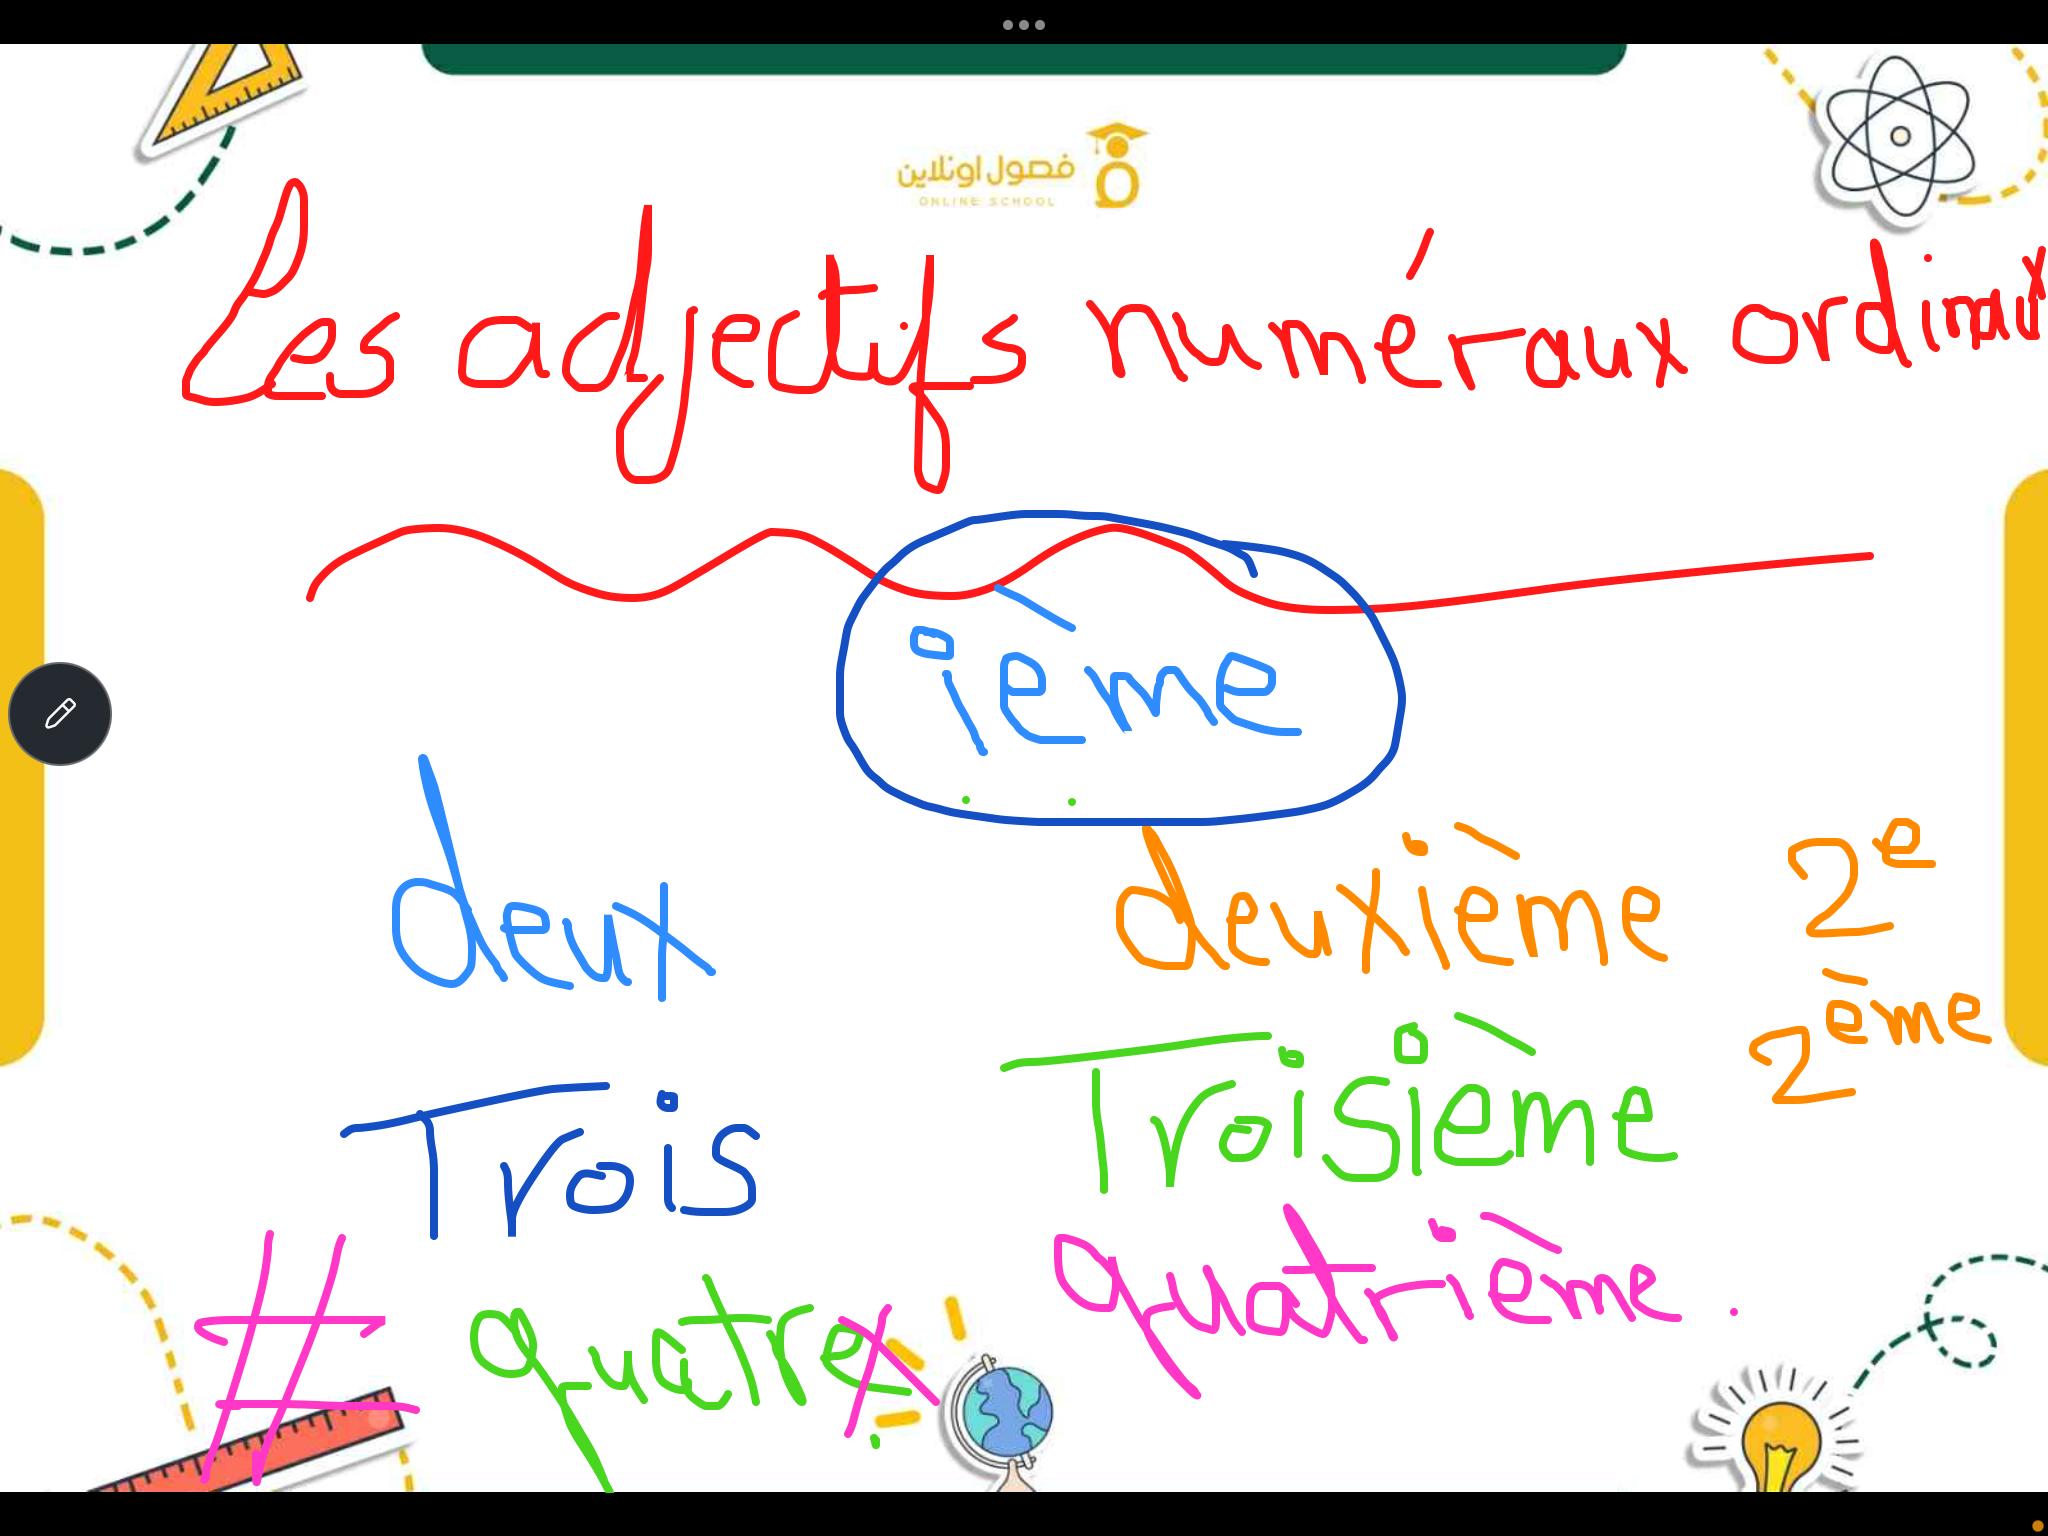 فصول اونلاين
ONLINE SCHOOL
Les adjectifs numéraux ordinaux
ième
deux deuxième 2e
2ème
Trois Troisième
# quatre quatrième.